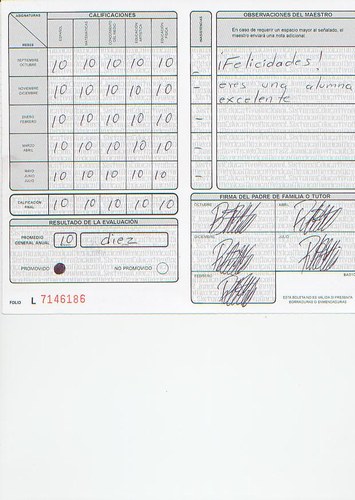 ASIGNATURAS
CALIFICACIONES
MESES
ESPAÑOL
MATEMATICAS
EDUCACION ARTISTICA
EDUCACION FISICA
SEPTIEMBRE OCTUBRE 10 10 10 10 10
NOVIEMBRE DICIEMBRE 10 10 10 10 10
ENERO FEBRERO 10 10 10 10 10
MARZO ABRIL 10 10 10 10 10
MAYO JUNIO JULIO 10 10 10 10 10
CALIFICACION FINAL 10 10 10 10 10
RESULTADO DE LA EVALUACION
PROMEDIO GENERAL ANUAL 10 diez
PROMOVIDO NO PROMOVIDO
FOLIO L 7146186
INASISTENCIAS
OBSERVACIONES DEL MAESTRO
En caso de requerir un espacio mayor al señalado, el
maestro enviará una nota adicional.
¡Felicidades!
eres una alumna
excelente
FIRMA DEL PADRE DE FAMILIA O TUTOR
OCTUBRE ABRIL
DICIEMBRE JULIO
FEBRERO
ESTA BOLETA NO ES VALIDA SI PRESENTA
BORRADURAS O ENMENDADURAS